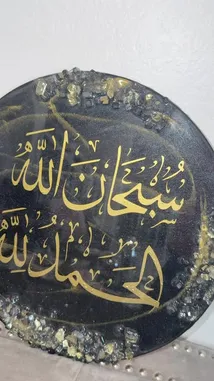 سُبْحَانَ اللَّه
الحَمْدُ لِلَّه